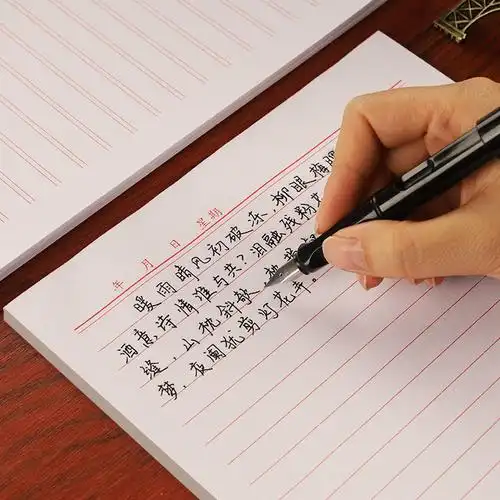 年 月 日 星期
暖雨晴风初破冻，柳眼梅腮
酒意诗情谁与共？泪融残粉
缝，山枕斜欹
梦，夜阑犹剪灯花弄。